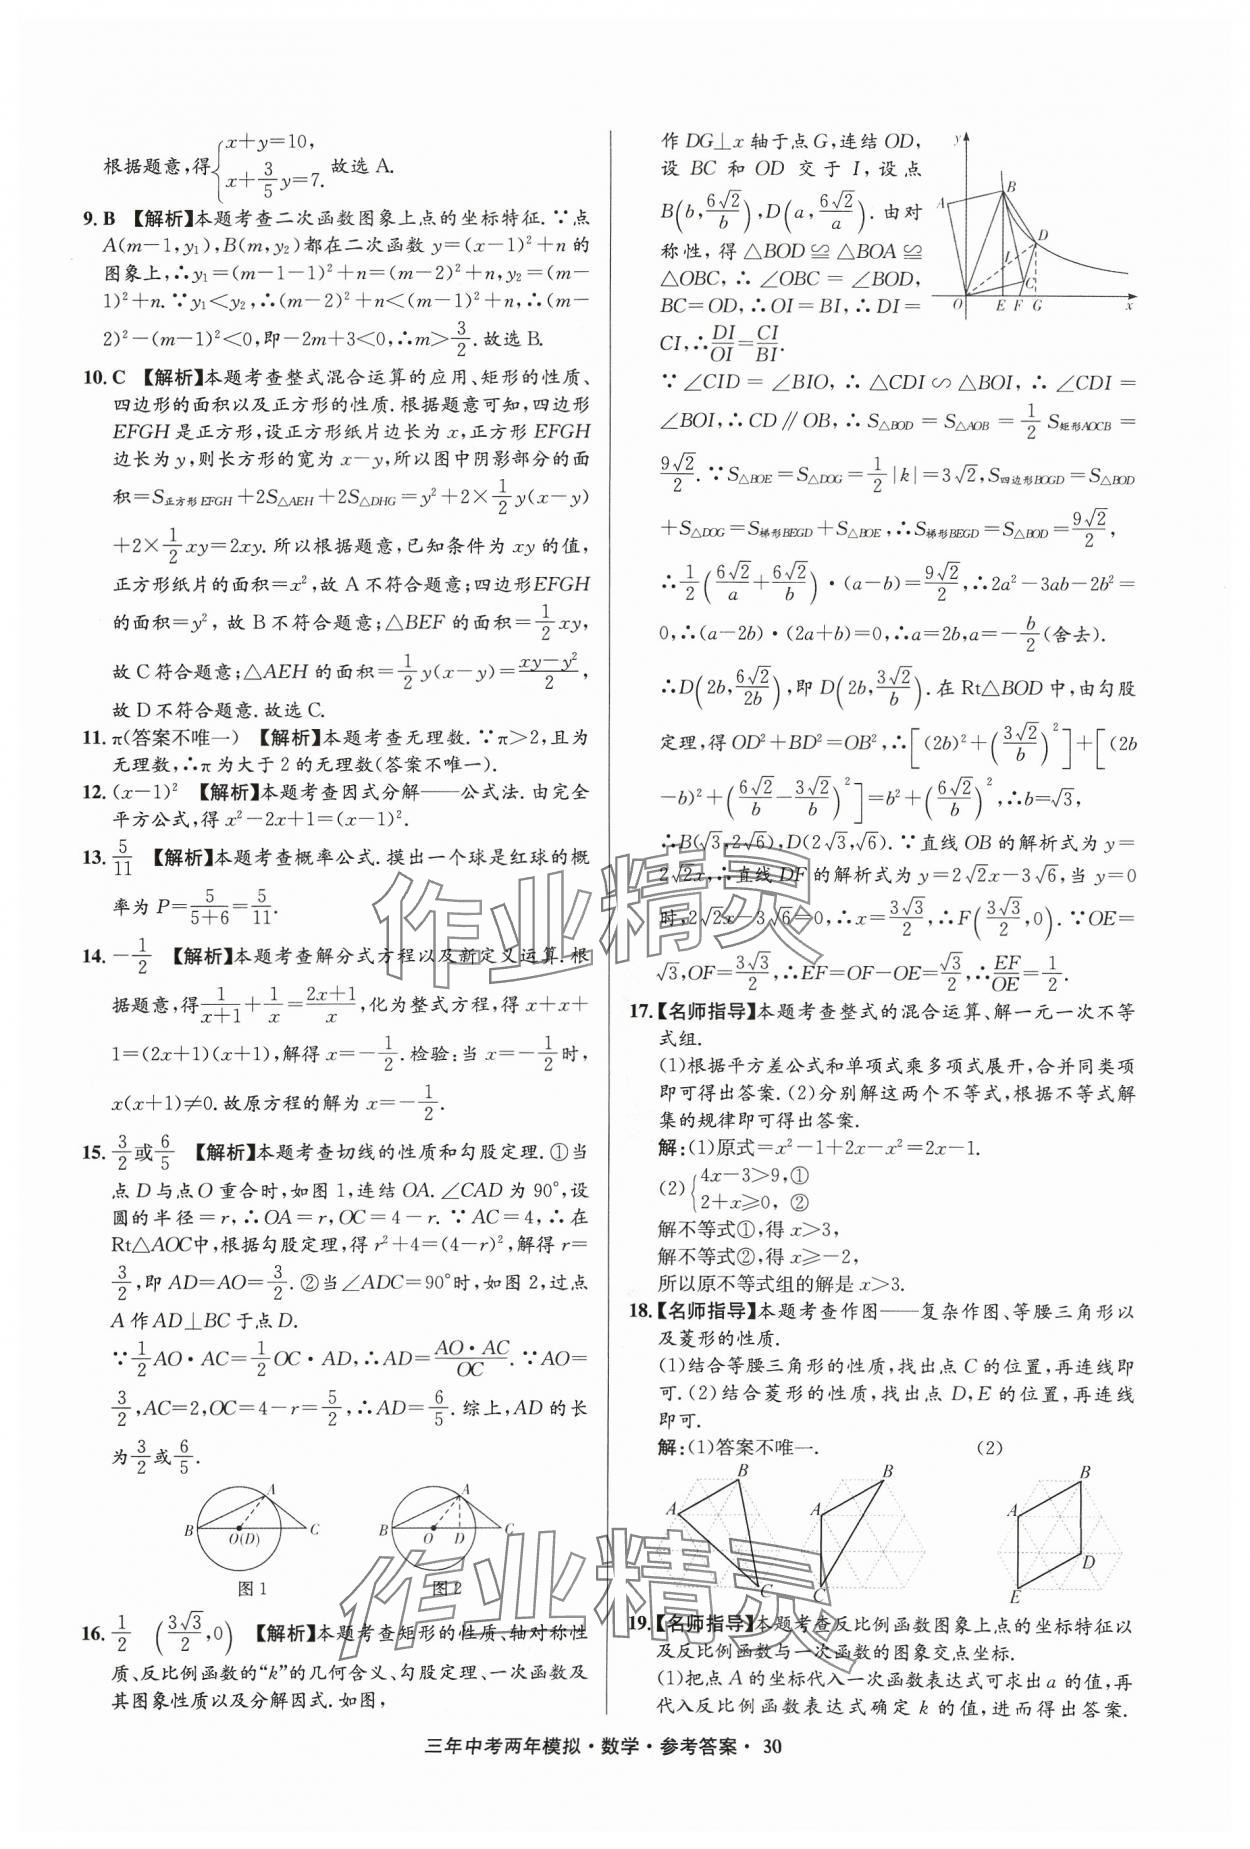 根据题意,得{x+y=10, x+3/5y=7. 故选A.
9. B 【解析】本题考查二次函数图象上点的坐标特征.∵点
A(m-1,y₁),B(m,y₂)都在二次函数 y=(x-1)²+n 的
图象上,∴y₁=(m-1-1)²+n=(m-2)²+n,y₂=(m-
1)²+n.∵y₁<y₂,∴(m-2)²+n<(m-1)²+n,∴(m-
2)²-(m-1)²<0,即-2m+3<0,∴m>3/2.故选B.
10. C 【解析】本题考查整式混合运算的应用、矩形的性质、
四边形的面积以及正方形的性质.根据题意可知,四边形
EFGH 是正方形,设正方形纸片边长为 x,正方形 EFGH
边长为 y,则长方形的宽为 x-y,所以图中阴影部分的面
积=S正方形EFGH+2S△AEH+2S△DHG=y²+2×1/2y(x-y)
+2×1/2xy=2xy.所以根据题意,已知条件为 xy 的值,
正方形纸片的面积=x²,故 A 不符合题意;四边形EFGH
的面积=y²,故 B 不符合题意;△BEF 的面积=1/2xy,
故 C 符合题意;△AEH 的面积=1/2y(x-y)=(xy-y²)/2,
故 D 不符合题意.故选C.
11. π(答案不唯一) 【解析】本题考查无理数.∵π>2,且为
无理数,∴π为大于2的无理数(答案不唯一).
12. (x-1)² 【解析】本题考查因式分解——公式法.由完全
平方公式,得 x²-2x+1=(x-1)².
13. 5/11 【解析】本题考查概率公式.摸出一个球是红球的概
率为 P=5/(5+6)=5/11.
14. -1/2 【解析】本题考查解分式方程以及新定义运算.根
据题意,得1/(x+1)+1/x=(2x+1)/x,化为整式方程,得 x+x+
1=(2x+1)(x+1),解得 x=-1/2.检验:当 x=-1/2时,
x(x+1)≠0.故原方程的解为 x=-1/2.
15. 3/2或6/5 【解析】本题考查切线的性质和勾股定理.①当
点 D 与点 O 重合时,如图1,连结 OA.∠CAD 为 90°,设
圆的半径=r,∴OA=r,OC=4-r.∵AC=4,∴在
Rt△AOC中,根据勾股定理,得 r²+4=(4-r)²,解得 r=
3/2,即 AD=AO=3/2.②当∠ADC=90°时,如图2,过点
A 作 AD⊥BC 于点 D.
∵1/2AO·AC=1/2OC·AD,∴AD=(AO·AC)/OC.∵AO=
3/2,AC=2,OC=4-r=5/2,∴AD=6/5.综上,AD 的长
为3/2或6/5.
A
B
O(D)
C
图1
A
B
O
D
C
图2
16. 1/2 (3√3/2,0) 【解析】本题考查矩形的性质、轴对称性
质、反比例函数的“k”的几何含义、勾股定理、一次函数及
其图象性质以及分解因式.如图,
作 DG⊥x 轴于点 G,连结 OD,
设 BC 和 OD 交于 I,设点
B(b,6√2/b),D(a,6√2/a).由对
称性,得△BOD≌△BOA≌
△OBC,∴∠OBC=∠BOD,
BC=OD,∴OI=BI,∴DI=
CI,∴DI/OI=CI/BI.
y
A
B
D
I
C
O
E
F
G
x
∵∠CID=∠BIO,∴△CDI∽△BOI,∴∠CDI=
∠BOI,∴CD∥OB,∴S△BOD=S△AOB=1/2S矩形AOCB=
9√2/2.∵S△BOE=S△DOG=1/2|k|=3√2,S四边形BOGD=S△BOD
+S△DOG=S梯形BEGD+S△BOE,∴S梯形BEGD=S△BOD=9√2/2,
∴1/2(6√2/a+6√2/b)·(a-b)=9√2/2,∴2a²-3ab-2b²=
0,∴(a-2b)·(2a+b)=0,∴a=2b,a=-b/2(舍去).
∴D(2b,6√2/2b),即 D(2b,3√2/b).在 Rt△BOD 中,由勾股
定理,得 OD²+BD²=OB²,∴[(2b)²+(3√2/b)²]+[(2b
-b)²+(6√2/b-3√2/b)²]=b²+(6√2/b)²,∴b=√3,
∴B(√3,2√6),D(2√3,√6).∵直线 OB 的解析式为 y=
2√2x,∴直线 DF 的解析式为 y=2√2x-3√6,当 y=0
时,2√2x-3√6=0,∴x=3√3/2,∴F(3√3/2,0).∵OE=
√3,OF=3√3/2,∴EF=OF-OE=√3/2,∴EF/OE=1/2.
17.【名师指导】本题考查整式的混合运算、解一元一次不等
式组.
(1)根据平方差公式和单项式乘多项式展开,合并同类项
即可得出答案.(2)分别解这两个不等式,根据不等式解
集的规律即可得出答案.
解:(1)原式=x²-1+2x-x²=2x-1.
(2){4x-3>9,① 2+x≥0, ②
解不等式①,得 x>3,
解不等式②,得 x≥-2,
所以原不等式组的解是 x>3.
18.【名师指导】本题考查作图——复杂作图、等腰三角形以
及菱形的性质.
(1)结合等腰三角形的性质,找出点 C 的位置,再连线即
可.(2)结合菱形的性质,找出点 D,E 的位置,再连线
即可.
解:(1)答案不唯一. (2)
A
B
C
A
B
C
A
B
D
E
19.【名师指导】本题考查反比例函数图象上点的坐标特征以
及反比例函数与一次函数的图象交点坐标.
(1)把点 A 的坐标代入一次函数表达式可求出 a 的值,再
代入反比例函数表达式确定 k 的值,进而得出答案.
三年中考两年模拟·数学·参考答案· 30
作业精灵
作业精灵